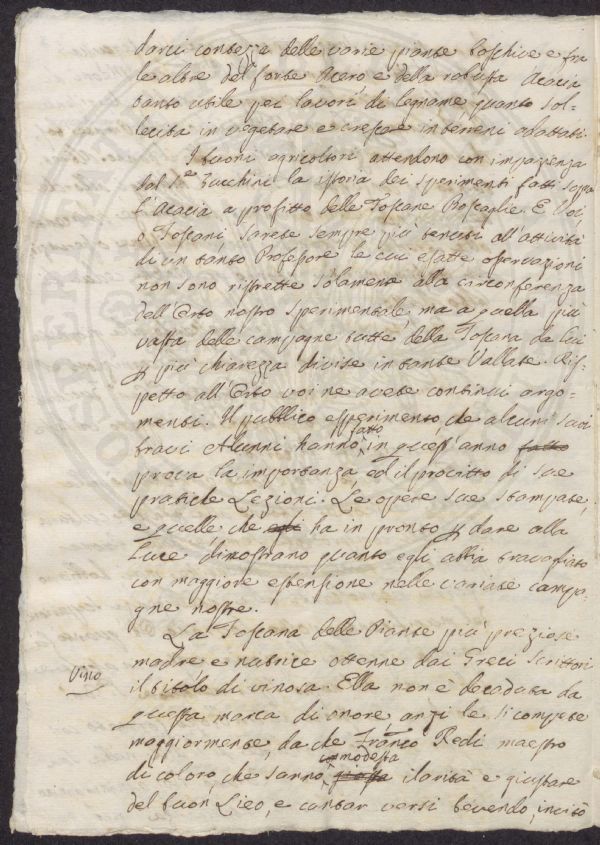 darci contezza delle varie piante boschive e fra
le altre del forte Acero e della robusta Acacia
tanto utile pei lavori di legname quanto sol=
lecita in vegetare e crescere in terreni adattati.
I buoni agricoltori attendono con impazienza
dal Sr. Zucchini la istoria dei sperimenti fatti sopra
l'Acacia a profitto delle Toscane Boscaglie. E Voi
o Toscani sarete sempre più tenuti all'attività
di un tanto Professore le cui esatte osservazioni
non sono ristrette solamente alla circonferenza
dell'Orto nostro sperimentale, ma a quella più
vasta delle campagne tutte della Toscana da lui
p più chiarezza divise in tante Vallate. Ris=
petto all'Orto voi ne avete continui argo=
menti. Il pubblico esperimento che alcuni suoi
bravi Alunni hanno fatto in quest'anno fatto
prova la importanza, ed il profitto di sue
pratiche Lezioni. Le opere sue stampate,
e quelle che egli ha in pronto p dare alla
Luce dimostrano quanto egli abbia travagliato
con maggiore estensione nelle variate campa=
gne nostre.
La Toscana delle Piante più preziose
madre e nutrice ottenne dai Greci Scrittori
Vino
il titolo di vinosa. Ella non è decaduta da
questa marca di onore anzi le si compete
maggiormente, da che Franco Redi maestro
di coloro, che sanno con modesta ilarità e giustare
del buon Lieo, e cantar versi bevendo, invitò